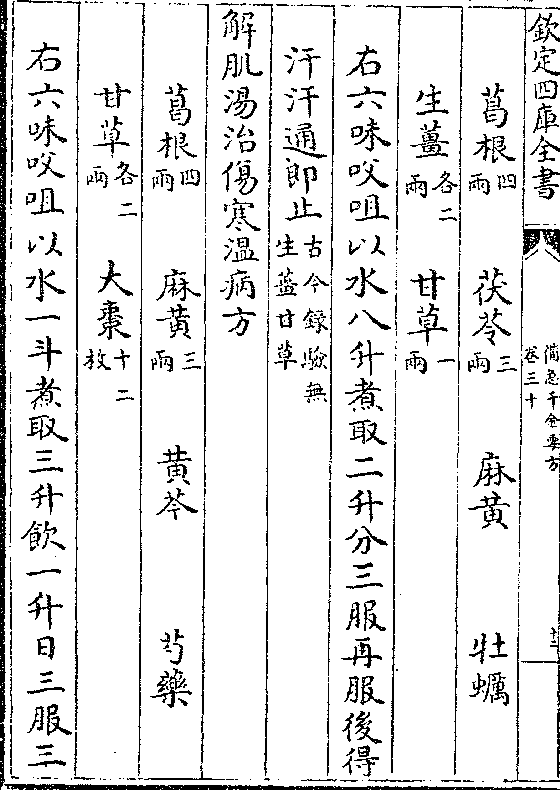 欽定四庫全書 備急千金要方 卷三十
葛根四兩 茯苓三兩 麻黄 牡蠣
生薑各二兩 甘草一兩
右六味㕮咀以水八升煮取二升分三服再服後得
汗汗通即止古今録驗無生薑甘草
解肌湯治傷寒温病方
葛根四兩 麻黄三兩 黄芩 芍藥
甘草各二兩 大棗十二枚
右六味㕮咀以水一斗煮取三升飲一升日三服三